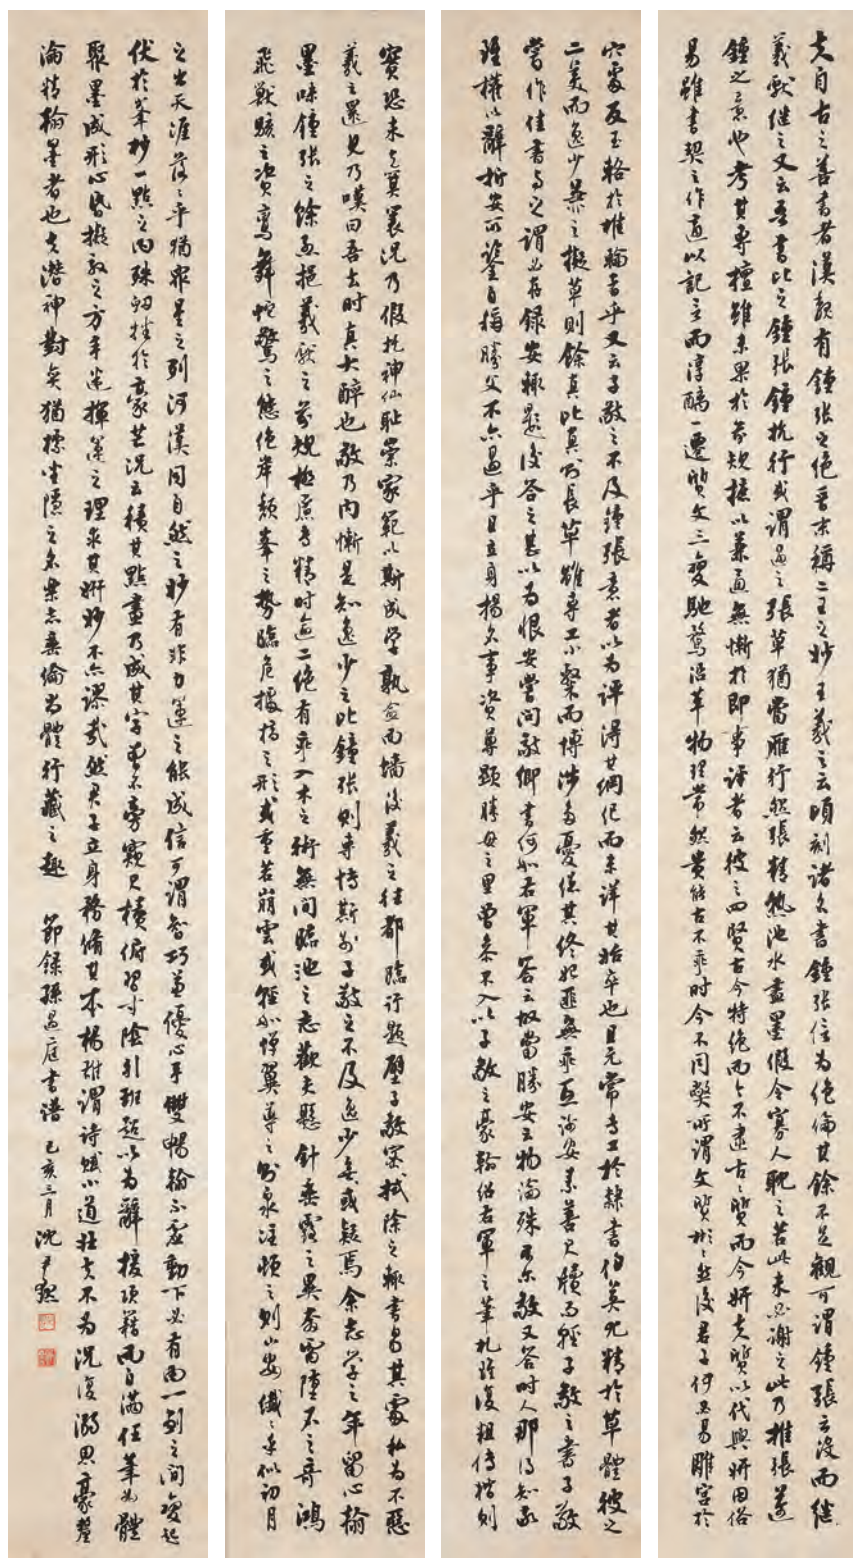 夫自古之善書者漢魏有鍾張之絕晉末稱二王之妙王羲之云頃尋諸名書鍾張信為絕倫其餘不足觀可謂鍾張云沒而繼
羲獻繼之又云吾書比之鍾張鍾抗行或謂過之張草猶當雁行然張精熟池水盡墨假令寡人耽之若此未必謝之此乃推張邁
鍾之意也考其專擅雖未果於前規摭以兼通無慚於即事評者云彼之四賢古今特絕而今不逮古古質而今妍夫質以代興妍因俗
易雖書契之作適以記言而淳醨一遷質文三變馳騖沿革物理常然貴能古不乖時今不同弊所謂文質彬彬然後君子何必易雕宮於
穴處反玉輅於椎輪者乎又云子敬之不及鍾張意者以為評得其綱紀而未詳其始卒也且元常專工於隸書伯英尤精於草體彼之
二美而逸少兼之擬草則餘真比真則長草雖專工小劣而博涉多優總其終始匪無乖互謝安素善尺牘而輕子敬之書子敬
嘗作佳書與之謂必存錄安輒題後答之甚以為恨安嘗問敬卿書何如右軍答云故當勝安云物論殊不爾敬又答時人那得知敬
雖權以辭折安所鑒自稱勝父不亦過乎且立身揚名事資尊顯勝母之里曾參不入以子敬之豪翰紹右軍之筆札雖復粗傳楷則
實恐未克箕裘況乃假托神仙恥崇家範以斯成學孰愈面牆後羲之往都臨行題壁子敬密拭除之輒書易其處私為不惡
羲之還見乃嘆曰吾去時真大醉也敬乃內慚是知逸少之比鍾張則專博斯別子敬之不及逸少無或疑焉余志學之年留心翰
墨味鍾張之餘烈挹羲獻之前規極慮專精時逾二紀有乖入木之術無間臨池之志觀夫懸針垂露之異奔雷墜石之奇鴻
飛獸駭之資鸞舞蛇驚之態絕岸頹峯之勢臨危據槁之形或重若崩雲或輕如蟬翼導之則泉注頓之則山安纖纖乎似初月
之出天涯落落乎猶眾星之列河漢同自然之妙有非力運之能成信可謂智巧兼優心手雙暢翰不虛動下必有由一畫之間變起
伏於峯杪一點之內殊衄挫於豪芒況云積其點畫乃成其字曾不旁窺尺牘俯習寸陰引班超以為辭援項籍而自滿任筆為體
聚墨成形心昏擬效之方手迷揮運之理求其妍妙不亦謬哉然君子立身務脩其本楊雄謂詩賦小道壯夫不為況復溺思豪釐
淪精翰墨者也夫潛神對奕猶標坐隱之名樂志垂綸尚體行藏之趣 節錄孫過庭書譜 己亥三月 沈尹默